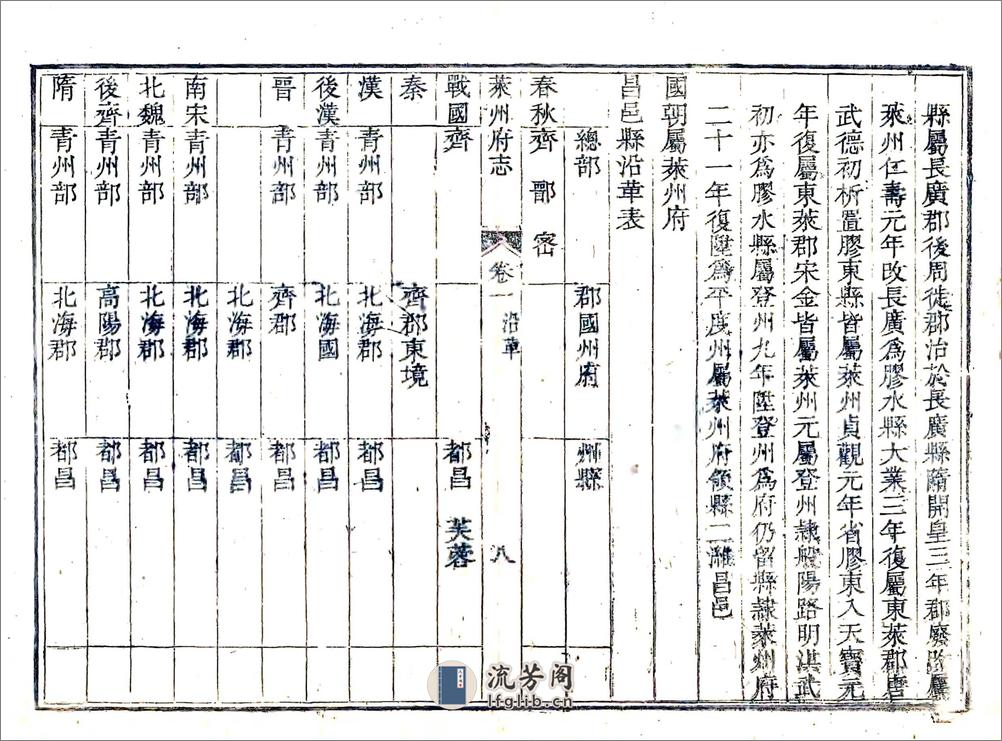 縣屬長廣郡後周徙郡治於長廣縣隋開皇三年郡廢縣屬
萊州仁壽元年改長廣爲膠水縣大業三年復屬東萊郡唐
武德初析置膠東縣皆屬萊州貞觀元年省膠東入天寶元
年復屬東萊郡宋金皆屬萊州元屬登州隸般陽路明洪武
初亦爲膠水縣屬登州九年陞登州爲府仍留縣隸萊州府
二十一年復陞爲平度州屬萊州府領縣二濰昌邑
國朝屬萊州府
昌邑縣沿革表
總部 郡國州府 州縣
春秋 齊 鄑 密
萊州府志 卷一 沿革 八
戰國 齊 都昌 芙蓉
秦 齊郡東境
漢 青州部 北海郡 都昌
後漢 青州部 北海國 都昌
晉 青州部 齊郡 都昌
北海郡 都昌
南宋 青州部 北海郡 都昌
北魏 青州部 北海郡 都昌
後齊 青州部 高陽郡 都昌
隋 青州部 北海郡 都昌
流芳阁
lfglib.cn